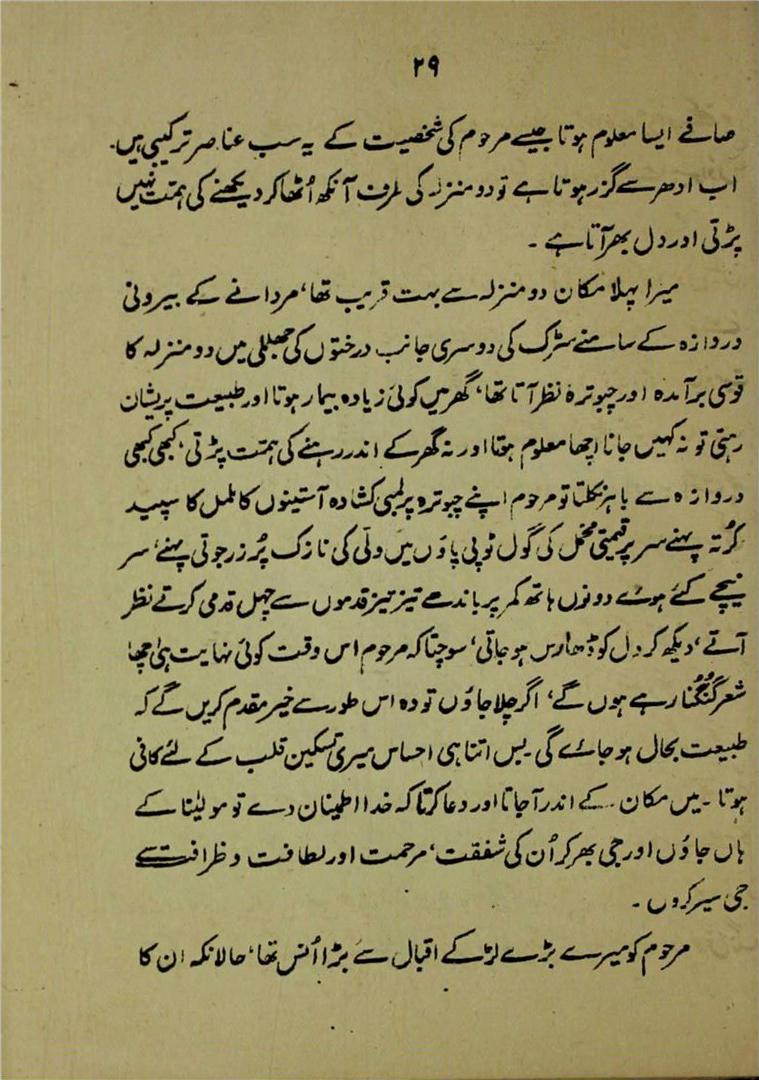 ۲۹
صافے ایسا معلوم ہوتا جیسے مرحوم کی شخصیت کے یہ سب عناصر ترکیبی ہیں۔
اب ادھر سے گزر ہوتا ہے تو دو منزلہ کی طرف آنکھ اُٹھا کر دیکھنے کی ہمت نہیں
پڑتی اور دل بھر آتا ہے ۔
میرا پہلا مکان دو منزلہ سے بہت قریب تھا، مردانے کے بیرونی
دروازہ کے سامنے سڑک کی دوسری جانب درختوں کی جھلملی میں دو منزلہ کا
قوسی برآمدہ اور چبوترہ نظر آتا تھا، گھر میں کوئی زیادہ بیمار ہوتا اور طبیعت پریشان
رہتی تو نہ کہیں جانا اچھا معلوم ہوتا اور نہ گھر کے اندر رہنے کی ہمت پڑتی، کبھی کبھی
دروازہ سے باہر نکلتا تو مرحوم اپنے چبوترہ پر لمبی کشادہ آستینوں کا ململ کا سپید
کُرتہ پہنے سر پر قیمتی مخمل کی گول ٹوپی پاؤں میں دلّی کی نازک پُر زر جوتی پہنے، سر
نیچے کئے ہوئے دونوں ہاتھ کمر پر باندھے تیز تیز قدموں سے چہل قدمی کرتے نظر
آتے، دیکھ کر دل کو ڈھارس ہو جاتی، سوچتا کہ مرحوم اس وقت کوئی نہایت ہی اچھا
شعر گُنگُنا رہے ہوں گے، اگر چلا جاؤں تو وہ اس طور سے خیر مقدم کریں گے کہ
طبیعت بحال ہو جائے گی۔ بس اتنا ہی احساس میری تسکین قلب کے لئے کافی
ہوتا ۔ میں مکان کے اندر آجاتا اور دعا کرتا کہ خدا اطمینان دے تو مولینا کے
ہاں جاؤں اور جی بھر کر اُن کی شفقت، مرحمت اور لطافت و ظرافت سے
جی سیر کروں ۔
مرحوم کو میرے بڑے لڑکے اقبال سے بڑا اُنس تھا، حالانکہ ان کا